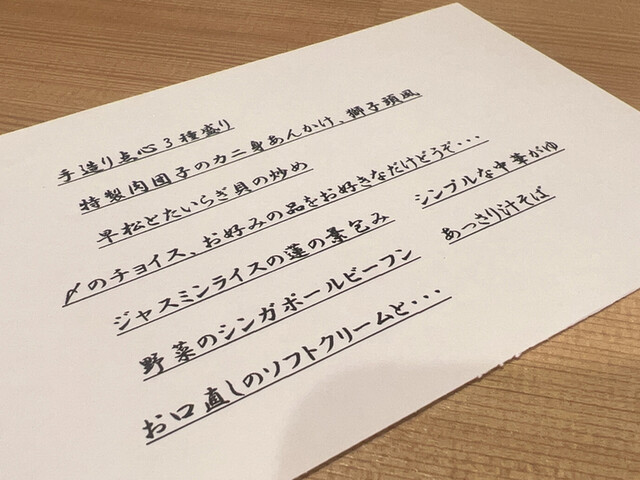 手造り点心3種盛り
特製肉団子のカニ身あんかけ、獅子頭風
早松とたいらぎ貝の炒め
〆のチョイス、お好みの品をお好きなだけどうぞ・・・
ジャスミンライスの蓮の葉包み
シンプルな中華がゆ
野菜のシンガポールビーフン
あっさり汁そば
お口直しのソフトクリームと・・・